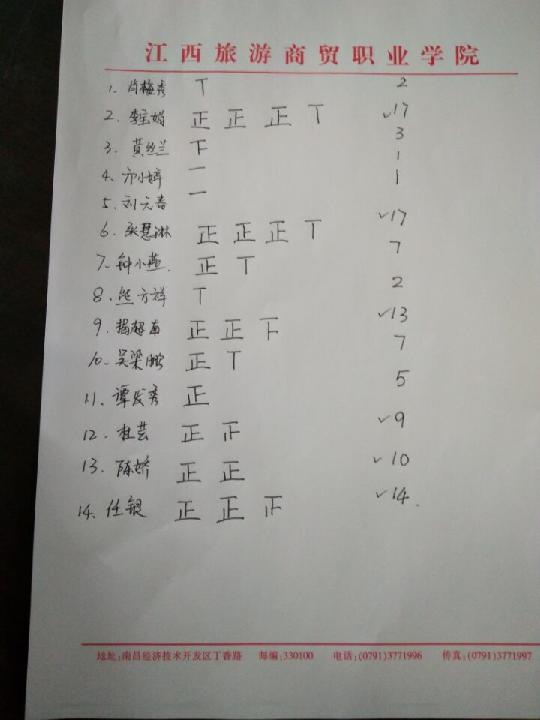 江西旅游商贸职业学院
1. 肖梅秀 丅 2
2. 李主娟 正 正 正 丅 ✓17
3. 黄丝兰 下 3
4. 邝小婷 一 1
5. 刘六香 一 1
6. 吴慧琳 正 正 正 丅 ✓17
7. 钟小燕. 正 丅 7
8. 熊方祥 丅 2
9. 正 正 下 ✓13
10. 吴梁 正 丅 7
11. 谭发秀 正 5
12. 杜芸 正 ✓9
13. 陈娇 正 正 ✓10
14. 任银 正 正 ✓14
地址:南昌经济技术开发区丁香路 邮编:330100 电话:(0791)3771996 传真:(0791)3771997